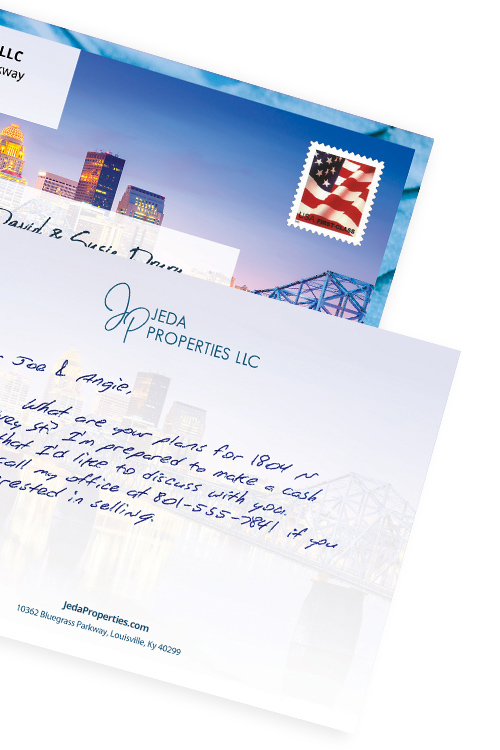 LLC
kway
USA FIRST-CLASS
David & Lucie
JP JEDA
PROPERTIES LLC
Joe & Angie,
What are your plans for 1804 N
St? I'm prepared to make a cash
that I'd like to discuss with you.
call my office at 801-555-7841 if you
rested in selling.
JedaProperties.com
10362 Bluegrass Parkway, Louisville, Ky 40299